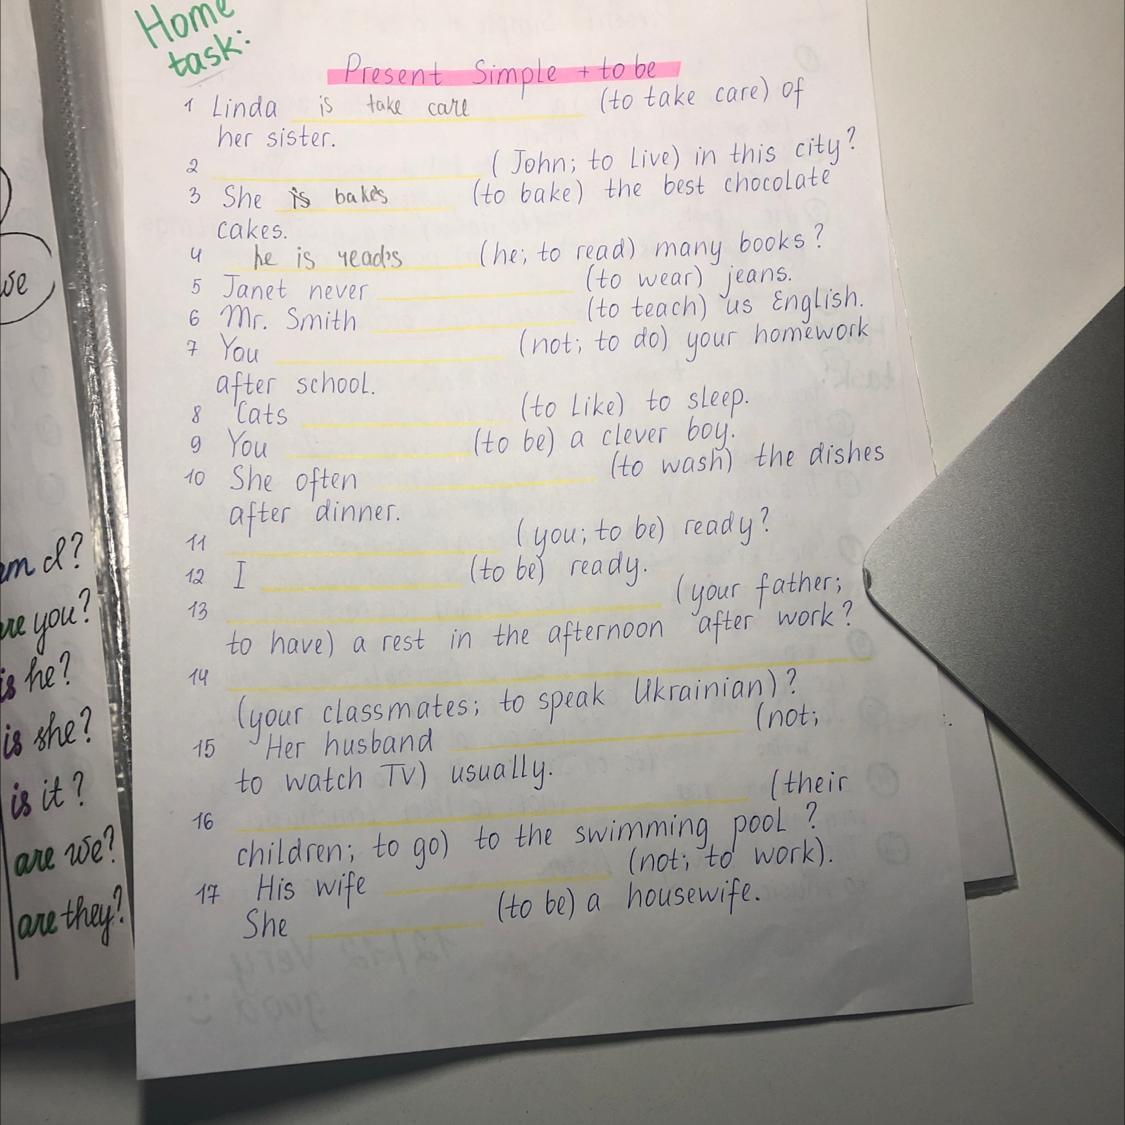 Home
task:
Present Simple + to be
1 Linda is take care (to take care) of
her sister.
2 (John; to live) in this city?
3 She is bakes (to bake) the best chocolate
cakes.
4 he is reads (he; to read) many books?
5 Janet never (to wear) jeans.
6 Mr. Smith (to teach) us English.
7 You (not; to do) your homework
after school.
8 Cats (to like) to sleep.
9 You (to be) a clever boy.
10 She often (to wash) the dishes
after dinner.
11 (you; to be) ready?
12 I (to be) ready.
13 (your father;
to have) a rest in the afternoon after work?
14
(your classmates; to speak Ukrainian)?
15 Her husband (not;
to watch TV) usually.
16 (their
children; to go) to the swimming pool?
17 His wife (not; to work).
She (to be) a housewife.
we
am I?
are you?
is he?
is she?
is it?
are we?
are they?